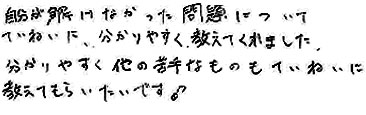 自分が解けなかった問題について
ていねいに、分かりやすく、教えてくれました、
分かりやすく他の苦手なものもていねいに
教えてもらいたいです♪